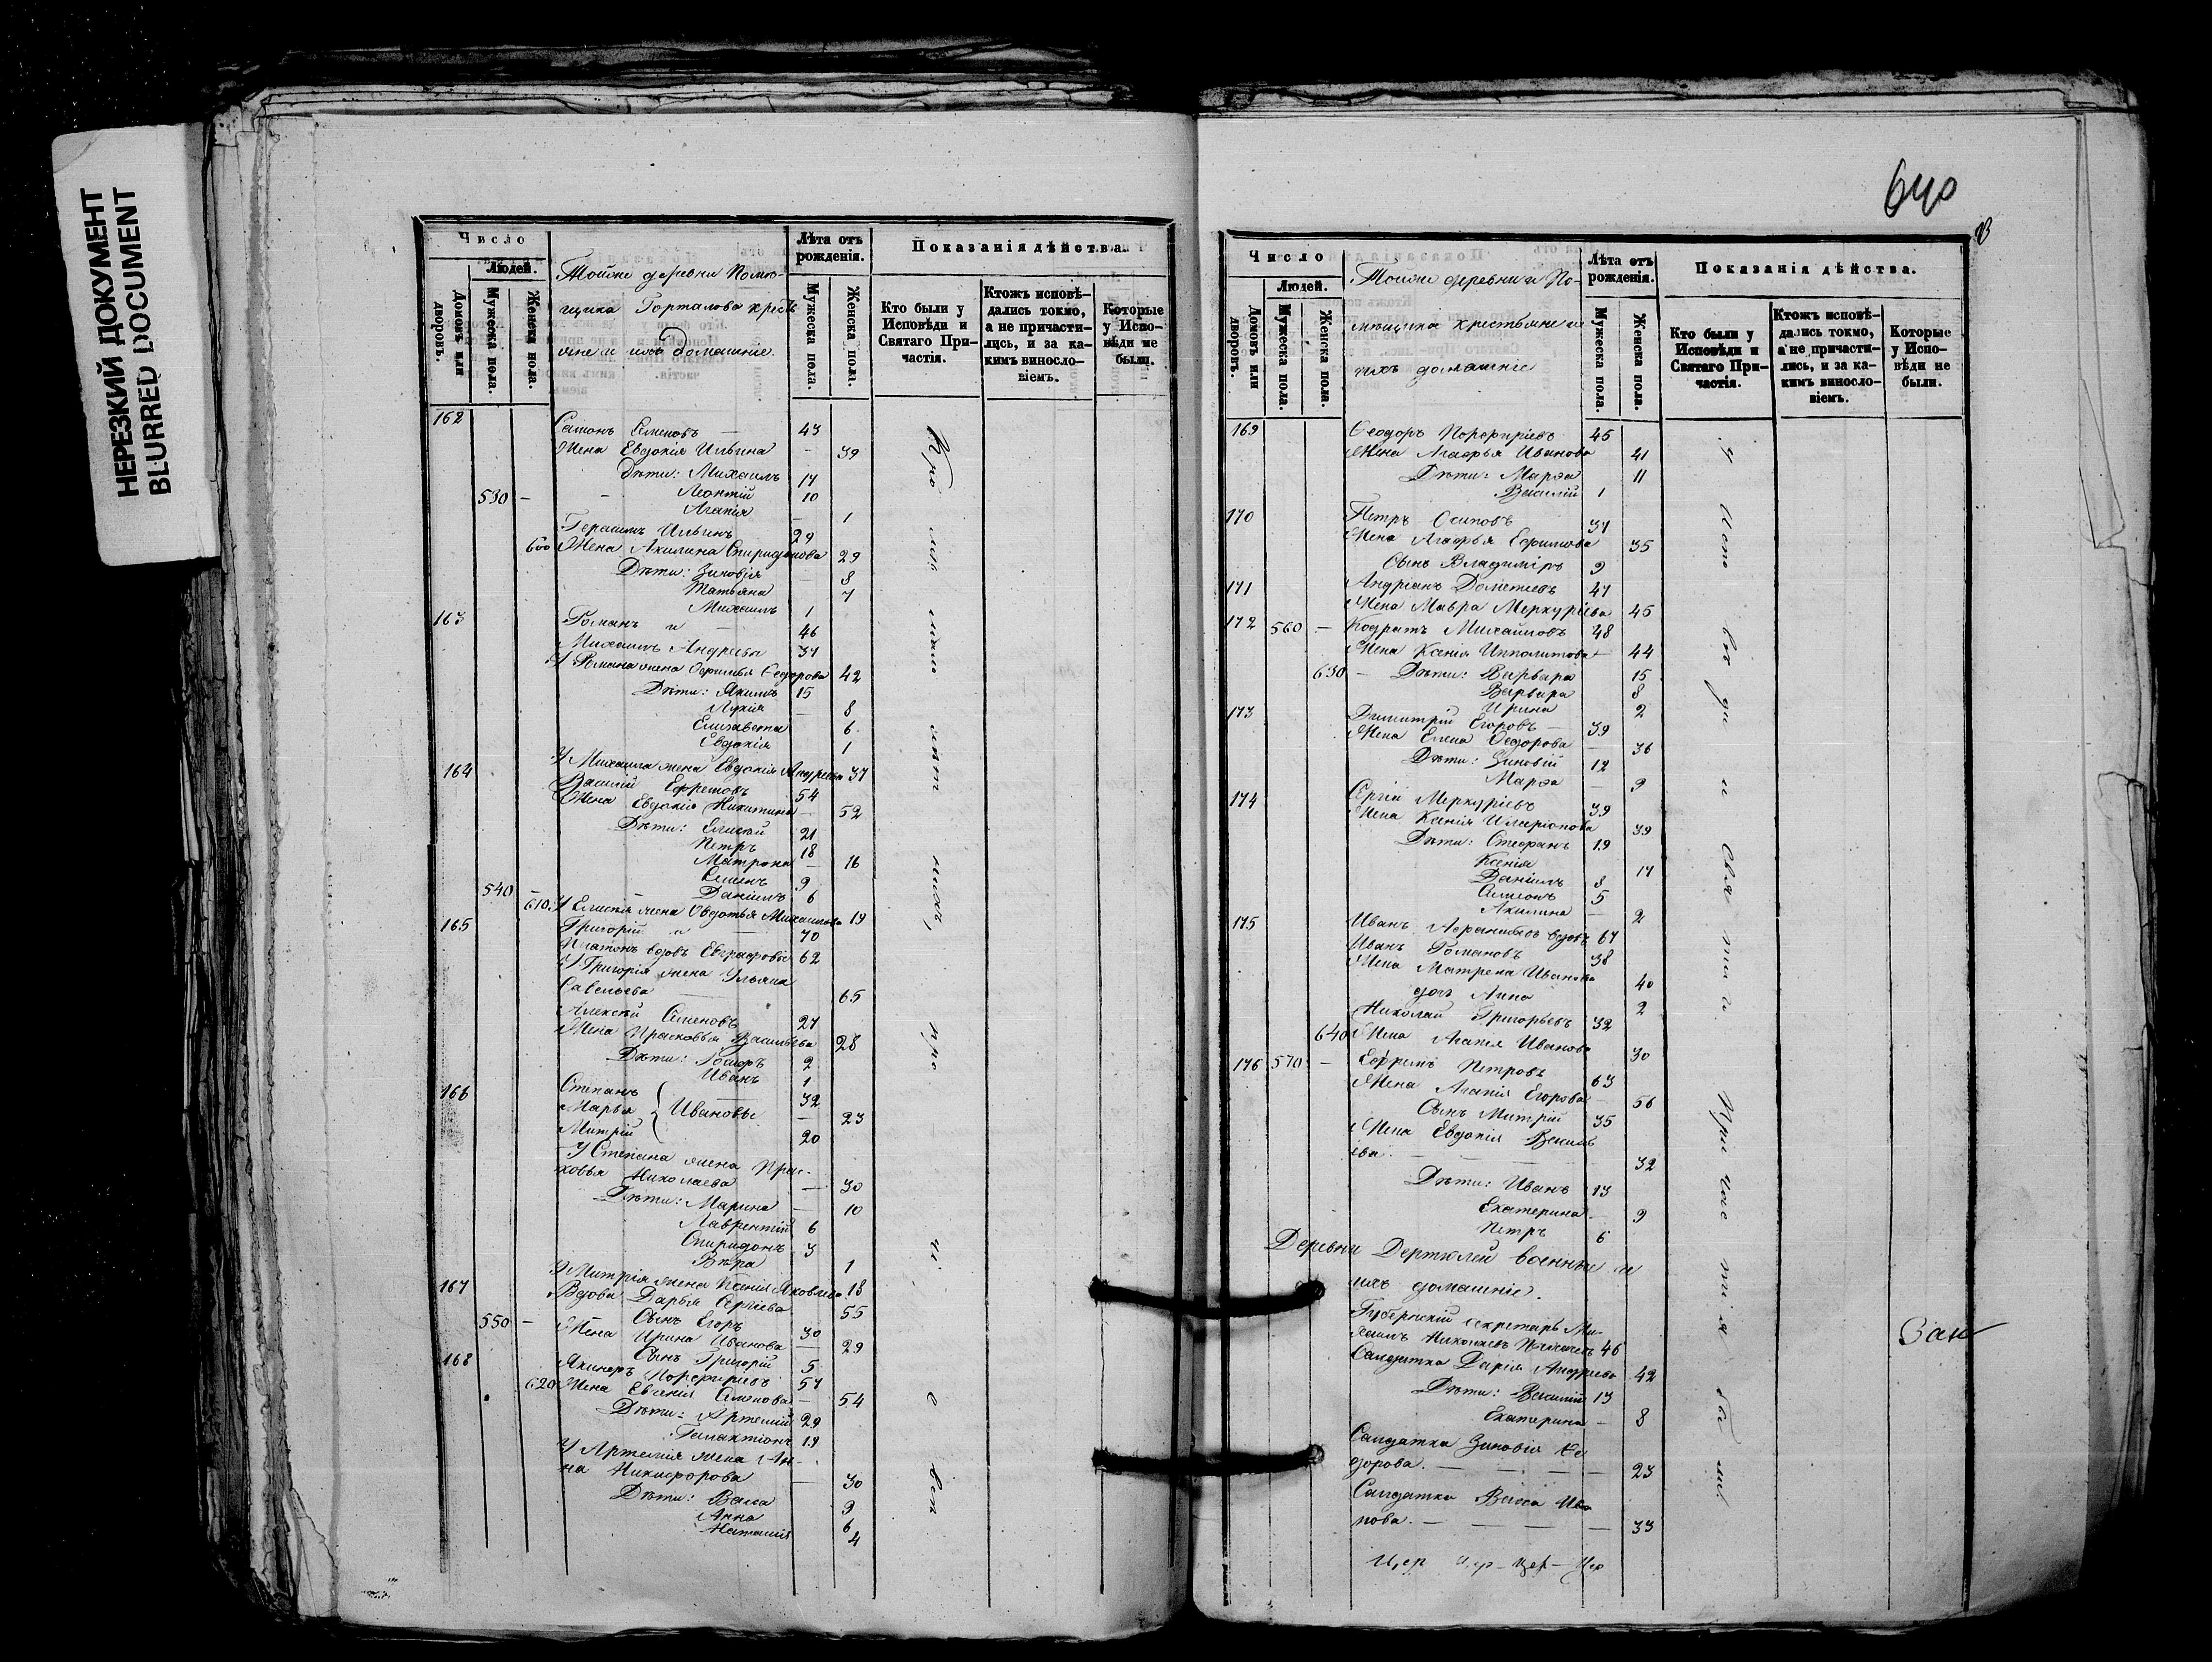 НЕРЕЗКИЙ ДОКУМЕНТ
BLURRED DOCUMENT
Число
Людей.
Домовъ или дворовъ.
Мужеска пола.
Женска пола.
Тойже деревни помѣ-
щика Горталова кресть
яне и ихъ домашніе.
Лѣта отъ рожденія.
Мужеска пола.
Женска пола.
Показанія дѣйства.
Кто были у Исповѣди и Святаго При-частія.
Ктожъ исповѣ-дались токмо, а не причасти-лись, и за ка-кимъ винословіемъ.
Которые у Испо-вѣди не были.
162 Семенъ Семеновъ — 43
Жена Евдокія Ильина - 39
Дѣти: Михаилъ 14
530 - Леонтій 10
Агапія - 1
Герасимъ Ильинъ 29
600 Жена Акилина Спиридонова 29
Дѣти: Зиновія — 8
Татьяна 7
Михаилъ 1
163 Романъ и — 46
Михаилъ Андреевы 37
У Романа жена Ефимья Ѳедорова 42
Дѣти: Якимъ 15
Лукія — 8
Елизавета 6
Евдокія 1
У Михаила жена Евдокія Андреева 37
164 Василій Ефремовъ 54
Жена Евдокія Никитина — 52
Дѣти: Елисей 21
Петръ 18
Матрона — 16
Семенъ 9
540 — Даніилъ 6
610. У Елисея жена Овдотья Михайлова 19
165 Григорій и — 70
Платонъ вдовъ Евграфовы 62
У Григорія жена Ульяна
Савельева — 65
Алексѣй Семеновъ 27
Жена Прасковья Васильева 28
Дѣти: Ѳедоръ 2
Иванъ 1
166 Степанъ 32
Марья Ивановы — 23
Митрій 20
У Степана жена Прас-
ковья Николаева — 30
Дѣти: Марина — 10
Лаврентій 6
Спиридонъ 3
Вѣра 1
У Митрія жена Ксенія Яковлева 18
167 Вдова Дарья Сергіева 55
550 — Сынъ Егоръ 30
Жена Ирина Иванова — 29
Сынъ Григорій 5
168 Якинфъ Порфиріевъ 57
620 Жена Евгенія Семенова — 54
Дѣти: Артемій 29
Галактіонъ 19
У Артемія жена Ан-
на Никифорова — 30
Дѣти: Васса 9
Анна 6
Наталія 4
640
Число
Людей.
Домовъ или дворовъ.
Мужеска пола.
Женска пола.
Тойже деревни и По-
мѣщика крестьяне и
ихъ домашніе
Лѣта отъ рожденія.
Мужеска пола.
Женска пола.
Показанія дѣйства.
Кто были у Исповѣди и Святаго При-частія.
Ктожъ исповѣ-дались токмо, а не причасти-лись, и за ка-кимъ винословіемъ.
Которые у Испо-вѣди не были.
169 Ѳеодоръ Порфиріевъ 45
Жена Агафья Иванова 41
Дѣти: Марѳа 11
Василій 1
170 Петръ Осиповъ 37
Жена Агафья Ефимова 35
Сынъ Владиміръ 9
171 Андріанъ Дометіевъ 47
Жена Мавра Меркуріева 45
172 560 — Кодратъ Михайловъ 48
Жена Ксенія Ипполитова 44
630 — Дѣти: Варвара 15
Варвара 8
Ирина 2
173 Димитрій Егоровъ 39
Жена Елена Ѳедорова — 36
Дѣти: Зиновій 12
Марѳа — 9
174 Сергій Меркуріевъ 39
Жена Ксенія Иларіонова 39
Дѣти: Стефанъ 19
Ксенія 17
Даніилъ 8
Симеонъ 5
Акилина — 2
175 Иванъ вдовъ 67
Иванъ Романовъ 38
Жена Матрена Иванова 40
дочь Анна 2
Николай Григорьевъ 32
640 Жена Агапія Иванова 30
176 570 — Ефремъ Петровъ 63
Жена Агапія Егорова 56
Сынъ Митрій 35
Жена Евдокія Василь
ева. — 32
Дѣти: Иванъ 13
Екатерина — 9
Петръ 6
Деревни Дертюлей военные и
ихъ домашніе.
Губернскій секретарь Ми-
хаилъ Николаевъ 46
Солдатка Дарія Андреева 42
Дѣти: Василій 13
Екатерина — 8
Солдатка Зиновія Ѳе
дорова. — 23
Солдатка Васса Ива
нова. — 33
у Исповѣди и Святаго Причастія были.